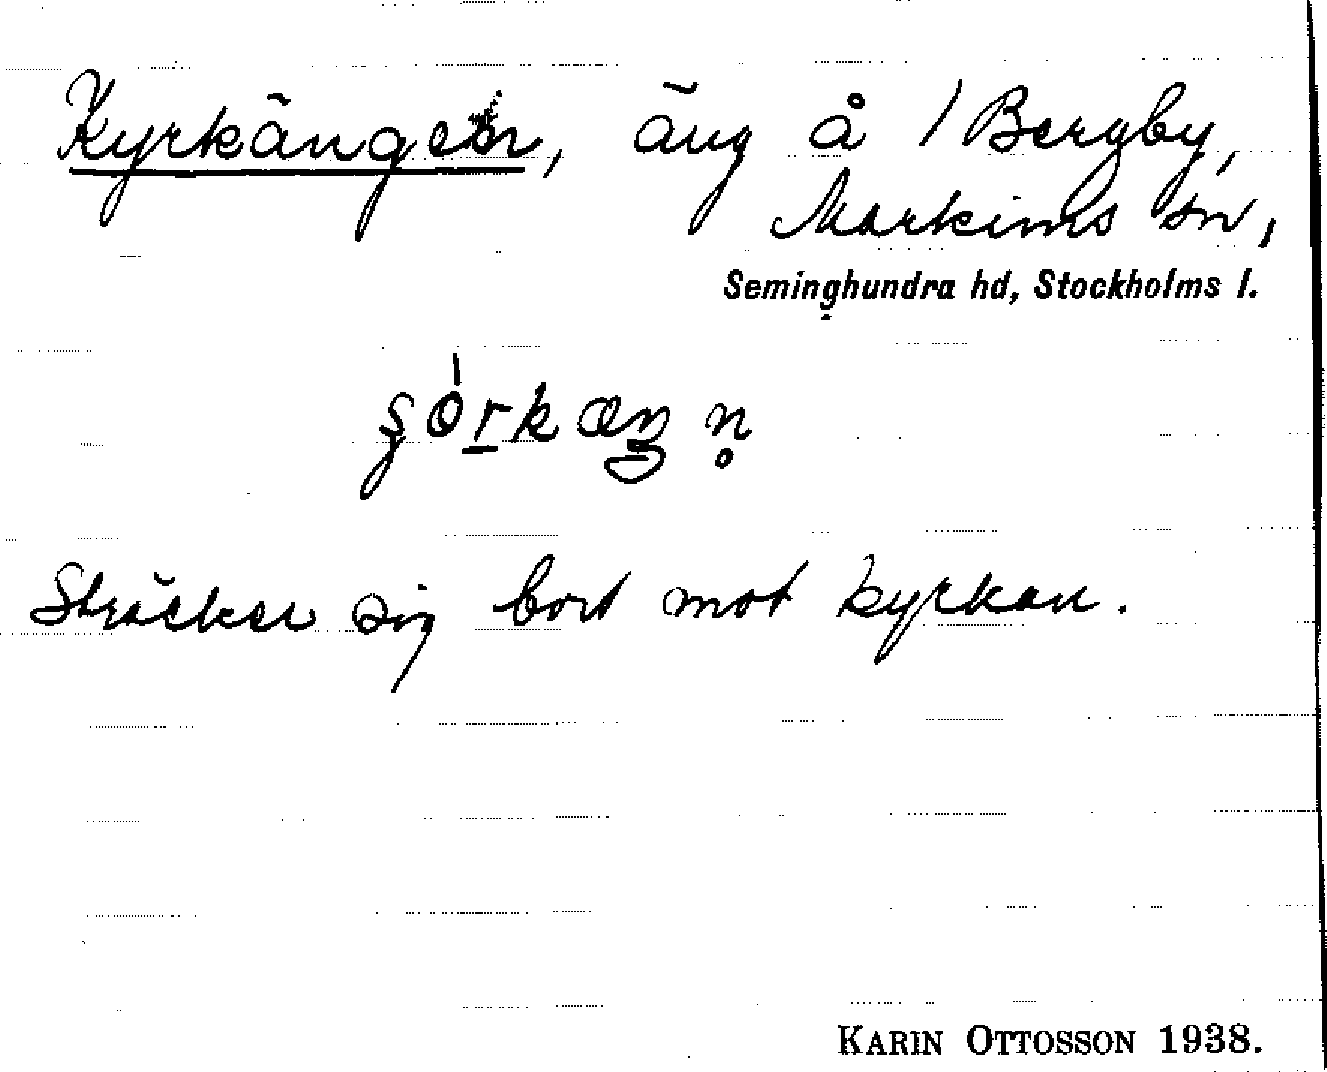 Kyrkängen, äng å / Bergby,
Markims sn,
Seminghundra hd, Stockholms l.
Sträcker sig bort mot kyrkan.
KARIN OTTOSSON 1938.